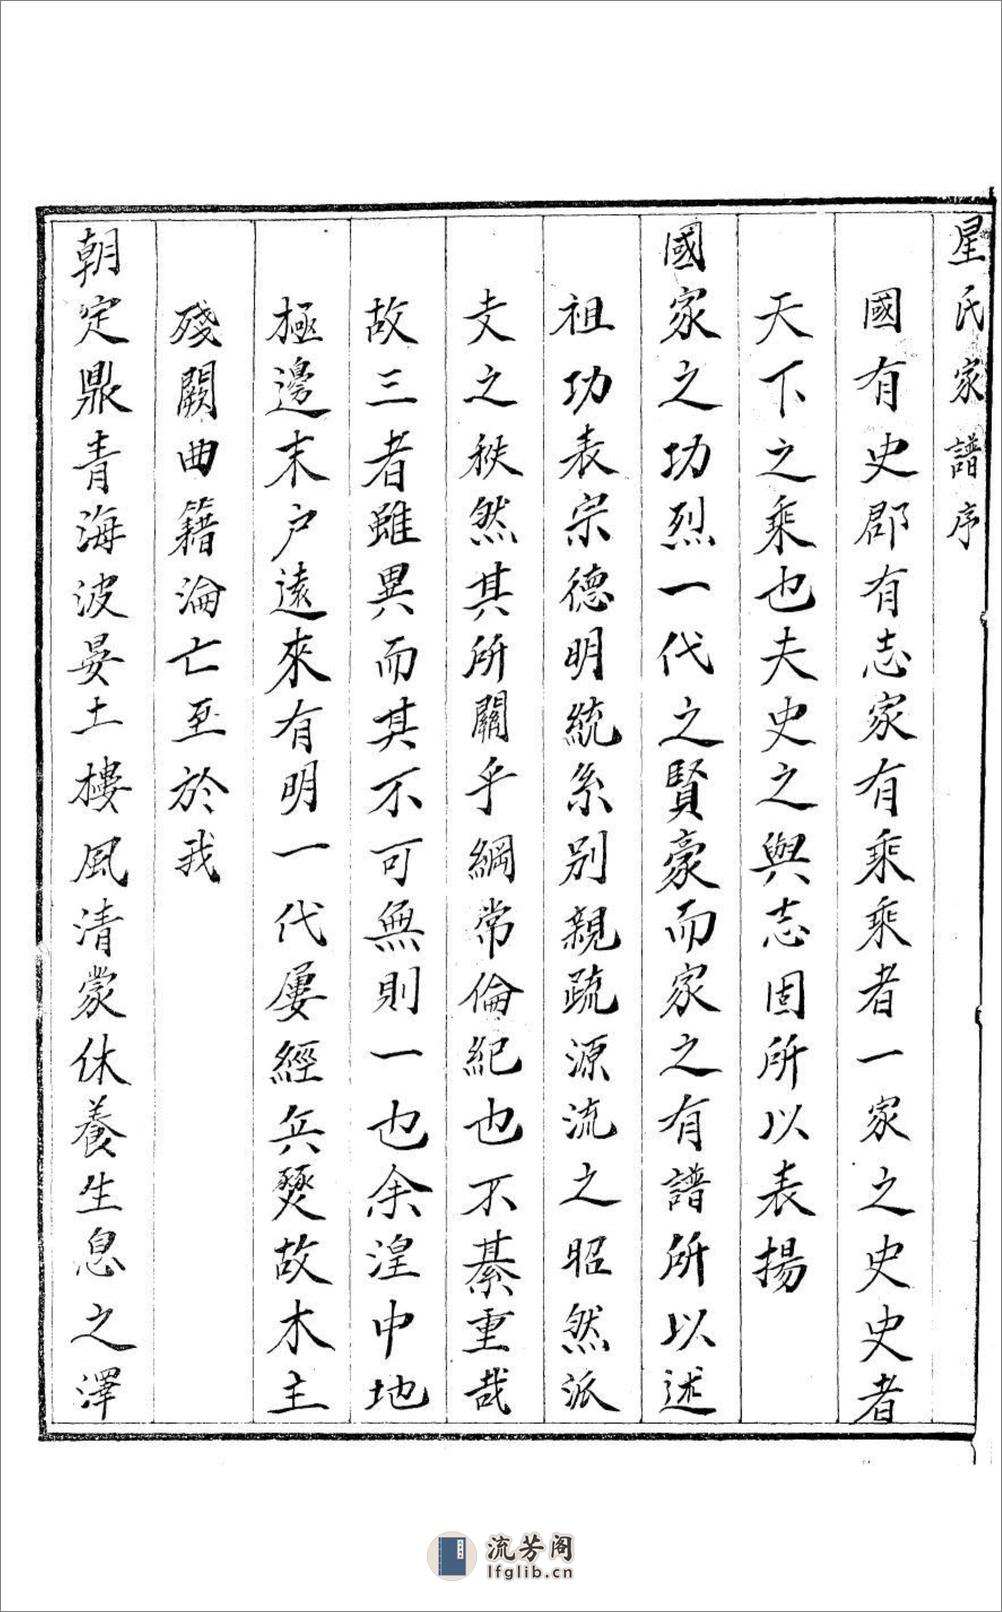 星氏家譜序
國有史郡有志家有乘乘者一家之史史者
天下之乘也夫史之與志固所以表揚
國家之功烈一代之賢豪而家之有譜所以述
祖功表宗德明統系別親疏源流之昭然派
支之秩然其所關乎綱常倫紀也不綦重哉
故三者雖異而其不可無則一也余湟中地
極邊末户遠來有明一代屢經兵燹故木主
殘闕曲籍淪亡至於我
朝定鼎青海波晏土樓風清蒙休養生息之澤
流芳阁
lfglib.cn